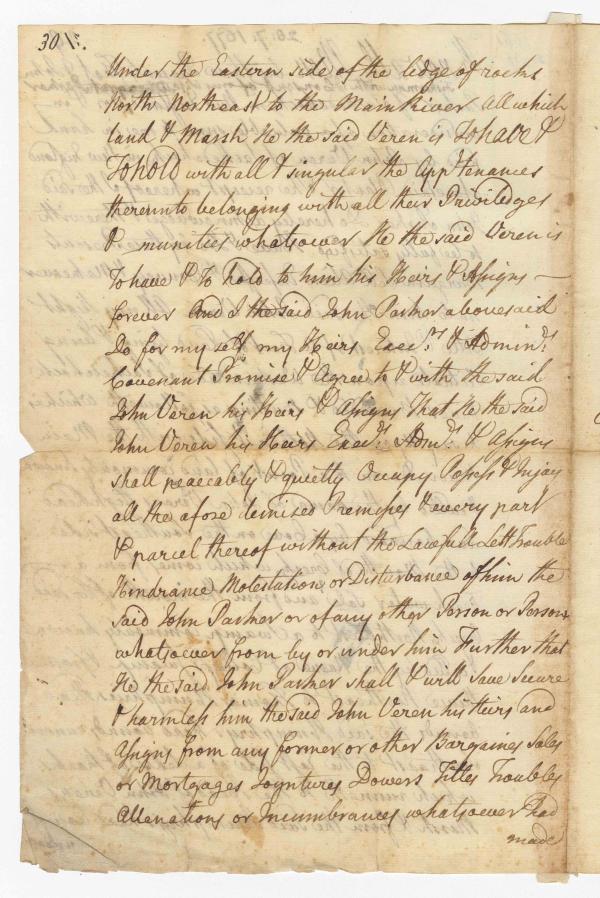 30
Under the Eastern side of the ledge of rocks
North Northeast to the Main River All which
land & Marsh He the said Veren is To have &
To hold with all & singular the Appʳtenances
thereunto belonging with all their Priviledges
& munities whatsoever He the said Veren is
To have & To hold to him his Heirs & Assigns —
forever And I the said John Parker abovesaid
Do for my self my Heirs Execʳˢ & Adminʳˢ
Covenant Promise & Agree to & with the said
John Veren his Heirs & Assigns That He the said
John Veren his Heirs Execʳˢ Admʳˢ & Assigns
shall peaceably & quietly Occupy Possess & Injoy
all the afore demised Premisses & every part
& parcel thereof without the Lawfull Lett Trouble
Hindrance Molestation or Disturbance of him the
said John Parker or of any other Person or Persons
whatsoever from by or under him Further that
He the said John Parker shall & will save Secure
& harmless him the said John Veren his Heirs and
Assigns from any former or other Bargaines Sales
or Mortgages Joyntures Dowers Titles Troubles
Allenations or Incumbrances whatsoever had
made